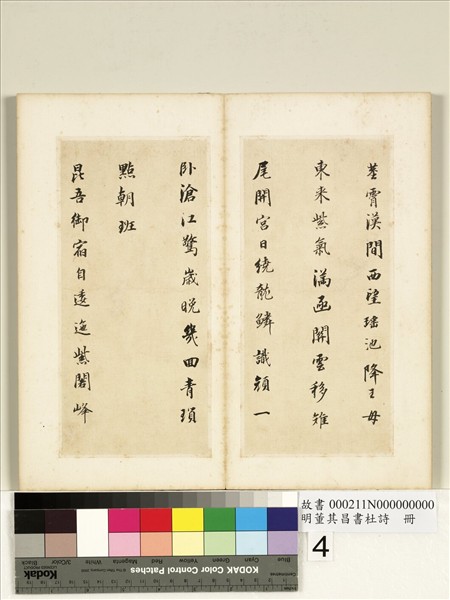 莖霄漢間西望瑤池降王母
東來紫氣滿函關雲移雉
尾開宮日繞龍鱗識顏一
卧滄江驚歲晚幾回青瑣
點朝班
昆吾御宿自逶迤紫閣峰
故書 000211N000000000
明董其昌書杜詩 冊
4
Blue Cyan Green Yellow Red Magenta White 3/Color Black
KODAK Color Control Patches
Kodak